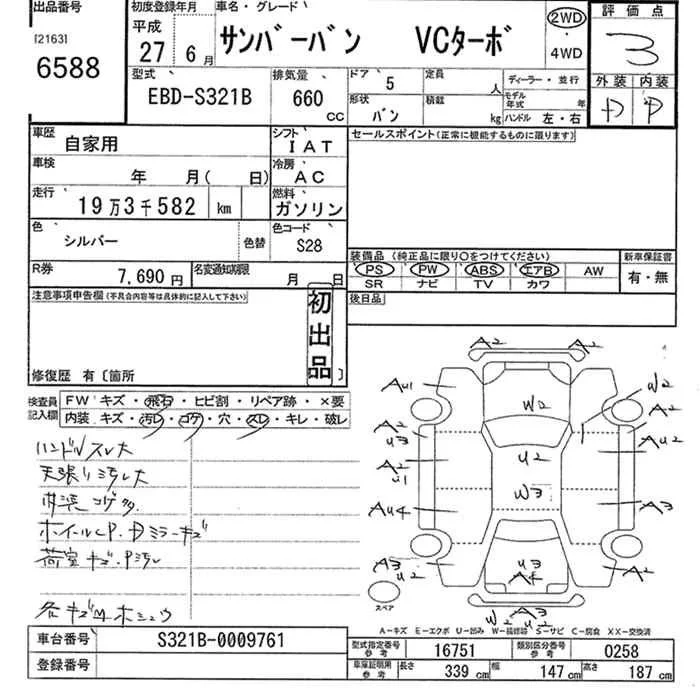 出品番号
[2163]
6588
初度登録年月
平成
27年 6月
車名・グレード
サンバーバン VCターボ
2WD
・
4WD
評価点
3
外装 内装
D D
型式
EBD-S321B
排気量
660
CC
ドア 5
形状 バン
定員 人
積載 kg
ディーラー・並行
モデル年式 年
ハンドル 左・右
車歴 自家用
シフト IAT
車検 年 月( 日)
冷房 AC
走行 19万3千582 km
燃料 ガソリン
色 シルバー 色替
色コード S28
R券 7,690円
名変通知期限 月 日
セールスポイント(正常に機能するものに限ります)
装備品(純正品に限り○をつけてください)
新車保証書
PS PW ABS エアB AW
有・無
SR ナビ TV カワ
後日品
注意事項申告欄(不具合内容等は具体的に記入して下さい)
初出品
修復歴 有〔箇所 〕
検査員記入欄
FW キズ・飛石・ヒビ割・リペア跡・×要
内装 キズ・汚レ・コゲ・穴・スレ・キレ・破レ
ハンドルスレ大
天張り汚レ大
内装コゲ多
ホイールCP.Dミラーキズ
荷室キズ.P汚レ
各キズMホシュウ
A2 A2
AU1
W2
W2
A2
A2
U3
AU2
A2
U1
U2
W3
AU4
A3
A3
U2
U3
A2
W2 A3 U2
スペア
A-キズ E-エクボ U-凹み W-補修跡 S-サビ C-腐食 XX-交換済
車台番号 S321B-0009761
登録番号
型式指定番号 参考 16751
類別区分番号 参考 0258
車庫証明用 参考 長さ 339cm 幅 147cm 高さ 187cm